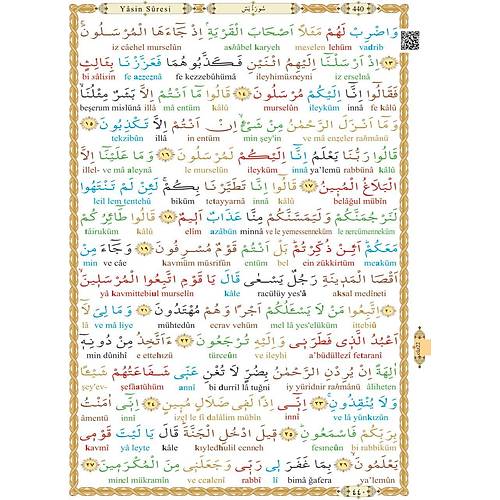 Yâsin Sûresi سُورَةُ يٰسٓ 440
وَاضْرِبْ لَهُمْ مَثَلًا اَصْحَابَ الْقَرْيَةِۘ اِذْ جَٓاءَهَا الْمُرْسَلُونَۚ
iz câehel murselûn ashâbel karyeh meselen lehüm vadrib
﴿١٣﴾ اِذْ اَرْسَلْنَٓا اِلَيْهِمُ اثْنَيْنِ فَكَذَّبُوهُمَا فَعَزَّزْنَا بِثَالِثٍ
bi sâlisin fe azzezna fe kezzebûhümâ ileyhimüsneyni iz erselnâ
فَقَالُٓوا اِنَّٓا اِلَيْكُمْ مُرْسَلُونَ ﴿١٤﴾ قَالُوا مَٓا اَنْتُمْ اِلَّا بَشَرٌ مِثْلُنَاۙ
beşerum mislünâ illâ mâ entüm kâlû murselûn ileyküm innâ fe kâlû
وَمَٓا اَنْزَلَ الرَّحْمٰنُ مِنْ شَيْءٍۙ اِنْ اَنْتُمْ اِلَّا تَكْذِبُونَ ﴿١٥﴾
tekzibûn illâ in entüm min şey'in ve mâ enzeler rahmânü
قَالُوا رَبُّنَا يَعْلَمُ اِنَّٓا اِلَيْكُمْ لَمُرْسَلُونَ ﴿١٦﴾ وَمَا عَلَيْنَٓا اِلَّا
illel- ve mâ aleynâ le murselûn ileyküm innâ ya'lemü rabbünâ kâlû
الْبَلَاغُ الْمُبِينُ ﴿١٧﴾ قَالُٓوا اِنَّا تَطَيَّرْنَا بِكُمْۚ لَئِنْ لَمْ تَنْتَهُوا
leil lem tentehû biküm tetayyarnâ innâ kâlû belâğul mübîn
لَنَرْجُمَنَّكُمْ وَلَيَمَسَّنَّكُمْ مِنَّا عَذَابٌ اَلِيمٌ ﴿١٨﴾ قَالُوا طَٓائِرُكُمْ
tâiruküm kâlû elîm azâbün minnâ ve le yemessenneküm le nercümenneküm
مَعَكُمْۜ اَئِنْ ذُكِّرْتُمْۜ بَلْ اَنْتُمْ قَوْمٌ مُسْرِفُونَ ﴿١٩﴾ وَجَٓاءَ مِنْ
min ve câe kavmüm müsrifûn entüm bel ein zükkirtüm meaküm
اَقْصَا الْمَدِينَةِ رَجُلٌ يَسْعٰى قَالَ يَا قَوْمِ اتَّبِعُوا الْمُرْسَلِينَۙ
yâ kavmittebiul murselîn kâle racülüy yes'â aksal medîneti
﴿٢٠﴾ اِتَّبِعُوا مَنْ لَا يَسْـَٔلُكُمْ اَجْرًا وَهُمْ مُهْتَدُونَ ﴿٢١﴾ وَمَا لِيَ لَٓا
lâ ve mâ liye mühtedûn ecrav vehüm mel lâ yes'elüküm ittebiû
اَعْبُدُ الَّذِي فَطَرَنِي وَاِلَيْهِ تُرْجَعُونَ ﴿٢٢﴾ ءَاَتَّخِذُ مِنْ دُونِهٓ
min dûnihî e ettehızü türceûn ve ileyhi a'büdüllezî fetaranî
اٰلِهَةً اِنْ يُرِدْنِ الرَّحْمٰنُ بِضُرٍّ لَا تُغْنِ عَنِّي شَفَاعَتُهُمْ شَيْـًٔا
şey'ev- şefâatühüm annî bi durril lâ tuğni iy yüridnir rahmânü âliheten
وَلَا يُنْقِذُونِۚ ﴿٢٣﴾ اِنِّٓي اِذًا لَفِي ضَلَالٍ مُبِينٍ ﴿٢٤﴾ اِنِّٓي اٰمَنْتُ
âmentü innî izel le fî dalâlim mübîn innî ve lâ yünkızûn
بِرَبِّكُمْ فَاسْمَعُونِۜ ﴿٢٥﴾ قِيلَ ادْخُلِ الْجَنَّةَۜ قَالَ يَا لَيْتَ قَوْمِي
kavmî yâ leyte kâle kıyledhulil cenneh fesmeûn bi rabbiküm
يَعْلَمُونَۙ ﴿٢٦﴾ بِمَا غَفَرَ لِي رَبِّي وَجَعَلَنِي مِنَ الْمُكْرَمِينَ ﴿٢٧﴾
minel mükramîn ve cealenî rabbî lî bimâ ğafera ya'lemûn
٤٤٠